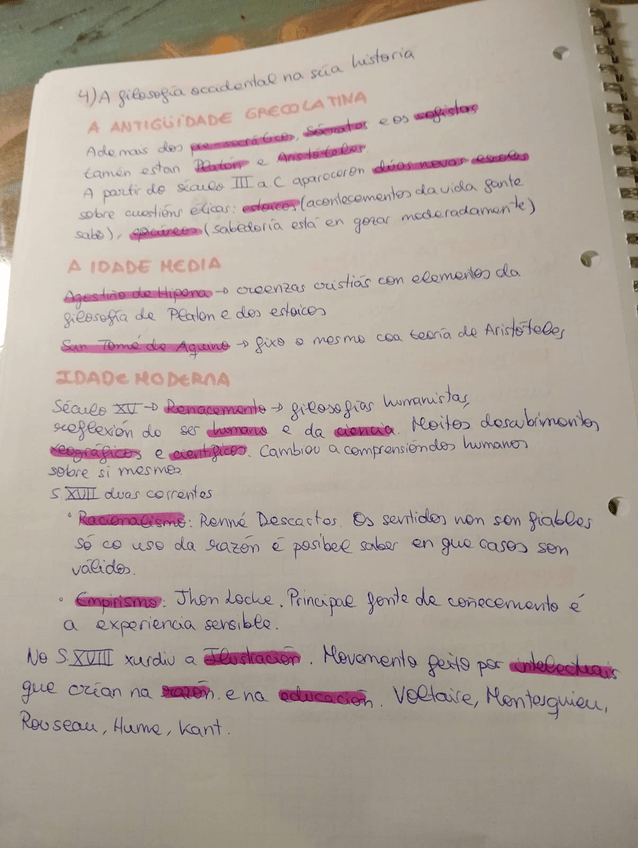 4) A filosofía occidental na súa historia
A ANTIGÜIDADE GRECOLATINA
Ademais dos presocráticos, Sócrates e os sofistas
tamén estan Platón e Aristóteles
A partir do século III a C apareceron dúas novas escolas
sobre cuestións éticas: estoicos (acontecementos da vida
sabo), epicúreos (sabedoría está en gozar moderadamente)
A IDADE MEDIA
Agostiño de Hipona → creenzas cristiás con elementos da
filosofía de Platon e dos estoicos
San Tomé de Aquino → fixo o mesmo coa teoría de Aristóteles
IDADE MODERNA
Século XV → Renacemento → filosofías humanistas,
reflexión do ser humano e da ciencia. Moitos descubrimentos
xeográficos e científicos. Cambiou a comprensión dos humanos
sobre si mesmos
S XVII duas correntes
• Racionalismo: Renné Descartes. Os sentidos non son fiables
só co uso da razón é posibel saber en que casos son
válidos.
• Empirismo: Jhon Locke. Principal fonte de coñecemento é
a experiencia sensible.
No S. XVIII xurdiu a Ilustración. Movemento feito por intelectuais
que crían na razón e na educación. Voltaire, Montesquieu,
Rouseau, Hume, Kant.